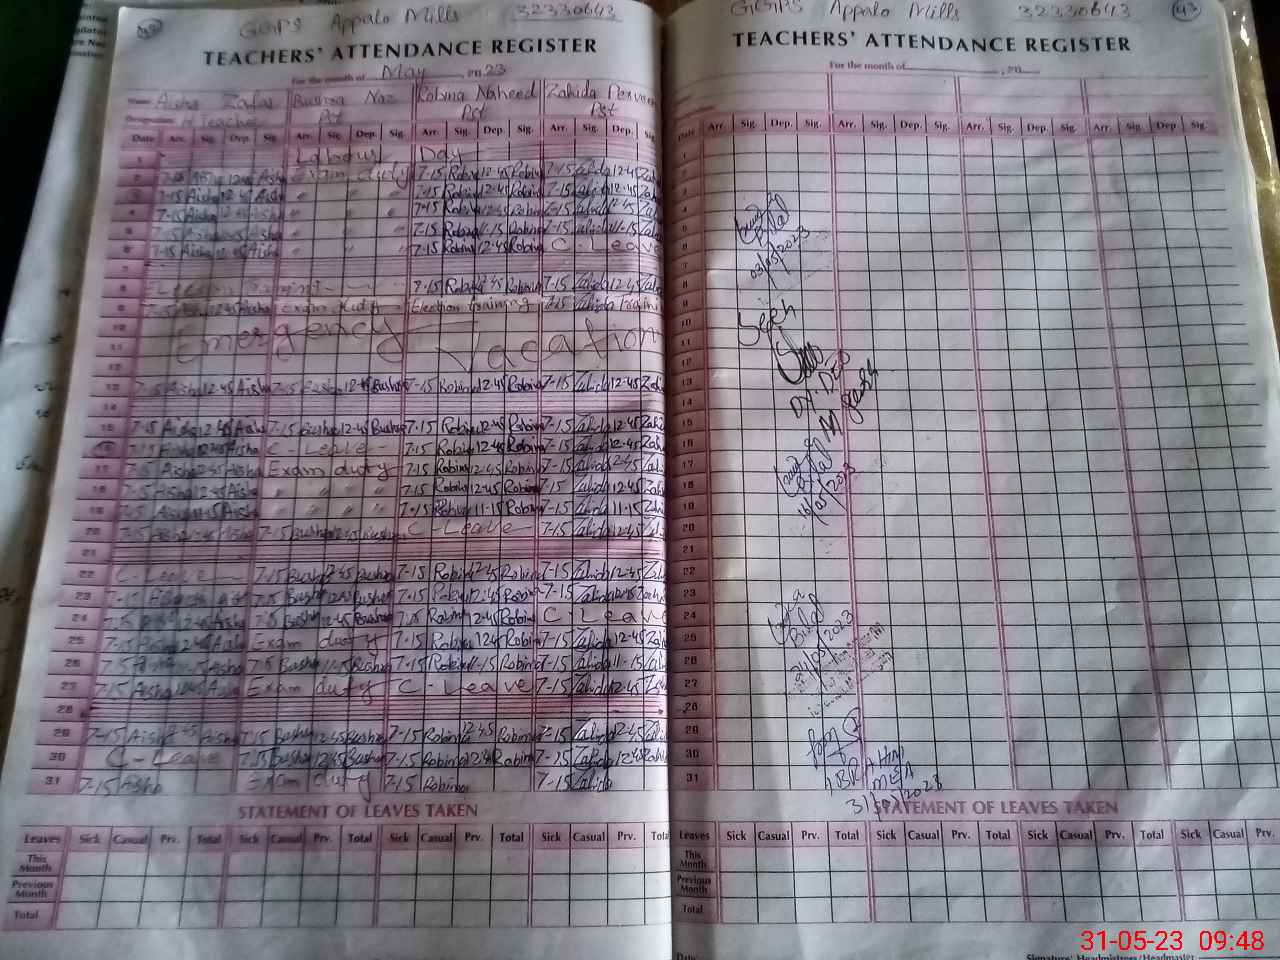 42
GGPS Appalo Mills 32330643
TEACHERS' ATTENDANCE REGISTER
For the month of May, 2023
Name Aisha Zafar Bushra Naz Robina Naheed Zahida Perveen
Designation H.Teacher Pst Pst Pst
Date Arr. Sig. Dep. Sig. Arr. Sig. Dep. Sig. Arr. Sig. Dep. Sig. Arr. Sig. Dep. Sig.
1 Labour Day
2 7-15 Aisha 12-45 Aisha Exam duty 7-15 Robina 12-45 Robina 7-15 Zahida 12-45
3 7-15 Aisha 12-45 Aisha " " " 7-15 Robina 12-45 Robina 7-15 Zahida 12-45
4 7-15 Aisha 12-45 Aisha " " " 7-15 Robina 12-45 Robina 7-15 Zahida 12-45
5 7-15 Aisha Aisha " " " 7-15 Robina 11-15 Robina 7-15 Zahida 11-15
6 7-15 Aisha 12-45 Aisha " " " 7-15 Robina 12-45 Robina C-Leave
7
8 Election Training 7-15 Robina 12-45 Robina 7-15 Zahida 12-45
9 7-15 Aisha 12-45 Aisha Exam duty Election training 7-15 Zahida
10 Emergency Vacation
11
12
13 7-15 Aisha 12-45 Aisha 7-15 Bushra 12-45 Bushra 7-15 Robina 12-45 Robina 7-15 Zahida 12-45
14
15 7-15 Aisha 12-45 Aisha 7-15 Bushra 12-45 Bushra 7-15 Robina 12-45 Robina 7-15 Zahida 12-45
16 7-15 Aisha 12-45 Aisha C-Leave 7-15 Robina 12-45 Robina 7-15 Zahida 12-45
17 7-15 Aisha 12-45 Aisha Exam duty 7-15 Robina 12-45 Robina 7-15 Zahida 12-45
18 7-15 Aisha 12-45 Aisha " " " " 7-15 Robina 12-45 Robina 7-15 Zahida 12-45
19 7-15 Aisha 11-15 Aisha " " " " 7-15 Robina 11-15 Robina 7-15 Zahida 11-15
20 7-15 Aisha 12-45 Aisha 7-15 Bushra 12-45 Bushra C-Leave 7-15 Zahida 12-45
21
22 C-Leave 7-15 Bushra 12-45 Bushra 7-15 Robina 12-45 Robina 7-15 Zahida 12-45
23 7-15 Aisha 7-15 Bushra 12-45 Bushra 7-15 Robina 12-45 Robina 7-15 Zahida 12-45
24 7-15 Aisha 12-45 Aisha 7-15 Bushra 12-45 Bushra 7-15 Robina 12-45 Robina C Leave
25 7-15 Aisha 12-45 Aisha Exam duty 7-15 Robina 12-45 Robina 7-15 Zahida 12-45
26 7-15 Aisha 11-15 Aisha 7-15 Bushra 11-15 Bushra 7-15 Robina 11-15 Robina 7-15 Zahida 11-15
27 7-15 Aisha 12-45 Aisha Exam duty C-Leave 7-15 Zahida 12-45
28
29 7-15 Aisha Aisha 7-15 Bushra 12-45 Bushra 7-15 Robina 12-45 Robina 7-15 Zahida 12-45
30 C-Leave 7-15 Bushra 12-45 Bushra 7-15 Robina 12-45 Robina 7-15 Zahida 12-45
31 7-15 Aisha Exam duty 7-15 Robina 7-15 Zahida
STATEMENT OF LEAVES TAKEN
Leaves Sick Casual Prv. Total Sick Casual Prv. Total Sick Casual Prv. Total Sick Casual Prv. Total
This Month
Previous Month
Total
GGPS Appalo Mills 32330643 43
TEACHERS' ATTENDANCE REGISTER
For the month of , 20
Date Arr. Sig. Dep. Sig. Arr. Sig. Dep. Sig. Arr. Sig. Dep. Sig. Arr. Sig. Dep Sig.
1
2
3
4
5
6
7
8
9
10
11
12
13
14
15
16
17
18
19
20
21
22
23
24
25
26
27
28
29
30
31
Bilal
03/05/2023
Seen
Dy. DEO
Bilal
16/05/2023
Bilal
24/05/2023
IBRAHIM
MEA
31/05/2023
STATEMENT OF LEAVES TAKEN
Leaves Sick Casual Prv. Total Sick Casual Prv. Total Sick Casual Prv. Total Sick Casual Prv.
This Month
Previous Month
Total
Date
Signature: Headmistress/Headmaster
31-05-23 09:48